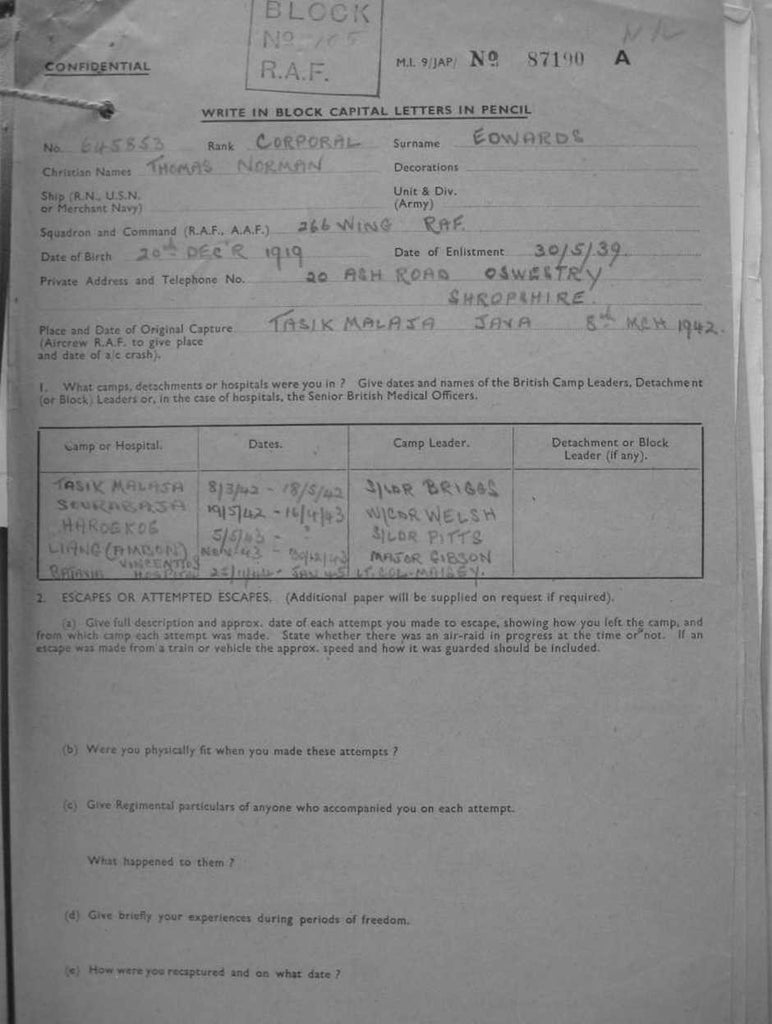 BLOCK
No 105
R.A.F.
CONFIDENTIAL
M.I. 9/JAP/ No 87190 A
WRITE IN BLOCK CAPITAL LETTERS IN PENCIL
No. 645853 Rank CORPORAL Surname EDWARDS
Christian Names THOMAS NORMAN Decorations
Ship (R.N., U.S.N. or Merchant Navy) Unit & Div. (Army)
Squadron and Command (R.A.F., A.A.F.) 266 WING RAF.
Date of Birth 20th DEC'R 1919 Date of Enlistment 30/5/39.
Private Address and Telephone No. 20 ASH ROAD OSWESTRY
SHROPSHIRE.
Place and Date of Original Capture TASIK MALAJA JAVA 8th MCH 1942.
(Aircrew R.A.F. to give place
and date of a/c crash).
1. What camps, detachments or hospitals were you in ? Give dates and names of the British Camp Leaders, Detachment
(or Block) Leaders or, in the case of hospitals, the Senior British Medical Officers.
Camp or Hospital. Dates. Camp Leader. Detachment or Block
Leader (if any).
TASIK MALAJA 8/3/42 - 18/5/42 S/LDR BRIGGS
SOURABAJA 19/5/42 - 16/4/43 W/CDR WELSH
HAROEKOE 5/5/43 - S/LDR PITTS
LIANG (AMBON) NOV 43 - MAJOR GIBSON
BATAVIA VINCENTIUS HOSPITAL JAN 45 LT. COL. MAISEY.
2. ESCAPES OR ATTEMPTED ESCAPES. (Additional paper will be supplied on request if required).
(a) Give full description and approx. date of each attempt you made to escape, showing how you left the camp, and
from which camp each attempt was made. State whether there was an air-raid in progress at the time or not. If an
escape was made from a train or vehicle the approx. speed and how it was guarded should be included.
(b) Were you physically fit when you made these attempts ?
(c) Give Regimental particulars of anyone who accompanied you on each attempt.
What happened to them ?
(d) Give briefly your experiences during periods of freedom.
(e) How were you recaptured and on what date ?